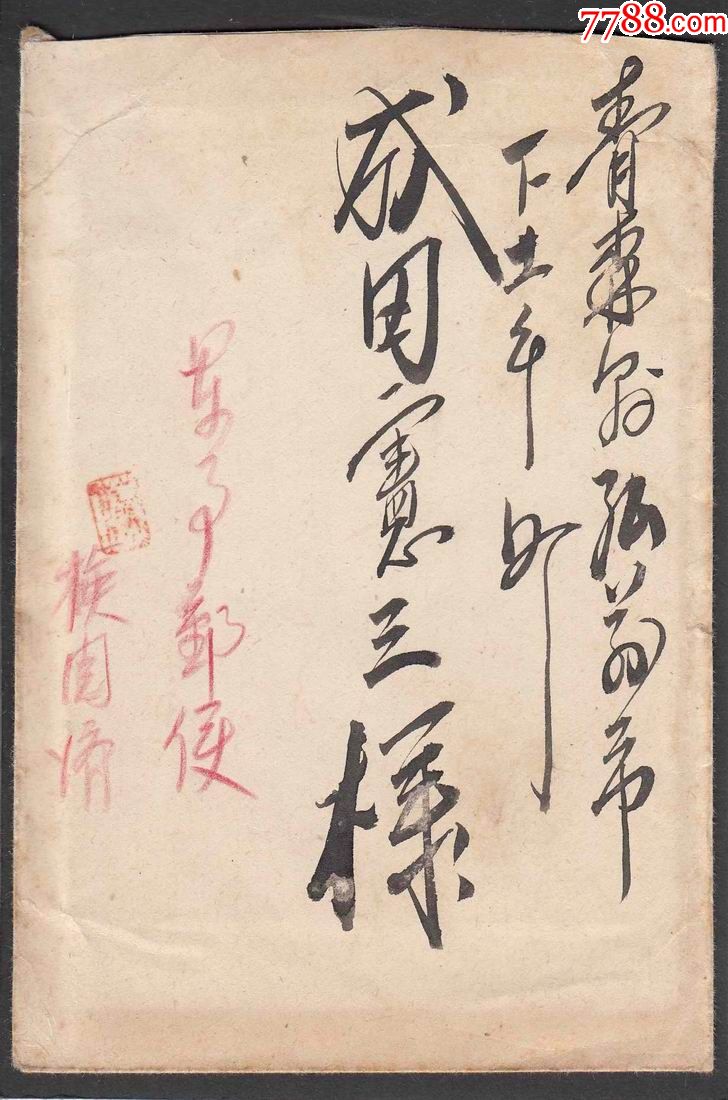 7788.com
青森縣弘前市
下土手町
成田憲三様
軍事郵便
検閲済